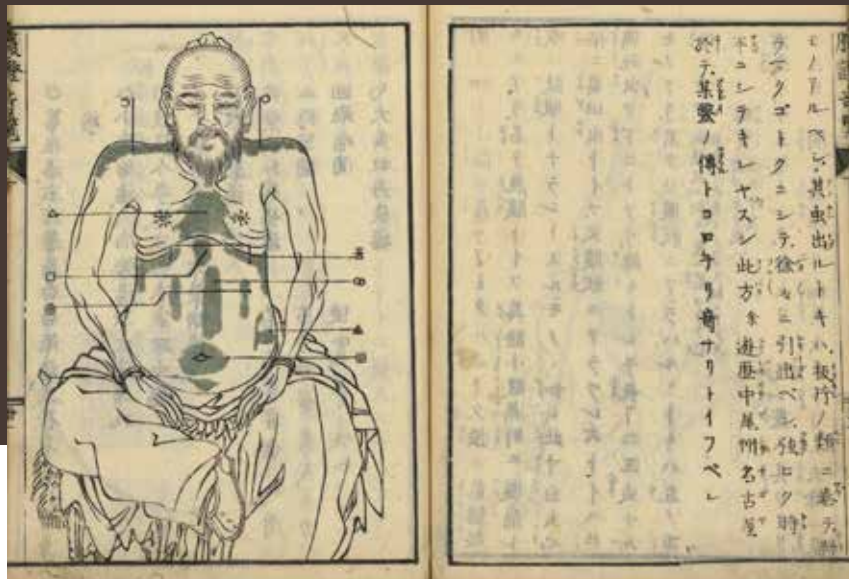 アルベシ其虫出ルトキハ板行ノ類ニ巻テ
クゴトクニシテ徐々ニ引出ベシ強ヒク時
シテキレヤスシ此方余遊歴中尾州名古屋
於テ某醫ノ傳トコロナリ奇ナリトイフベシ